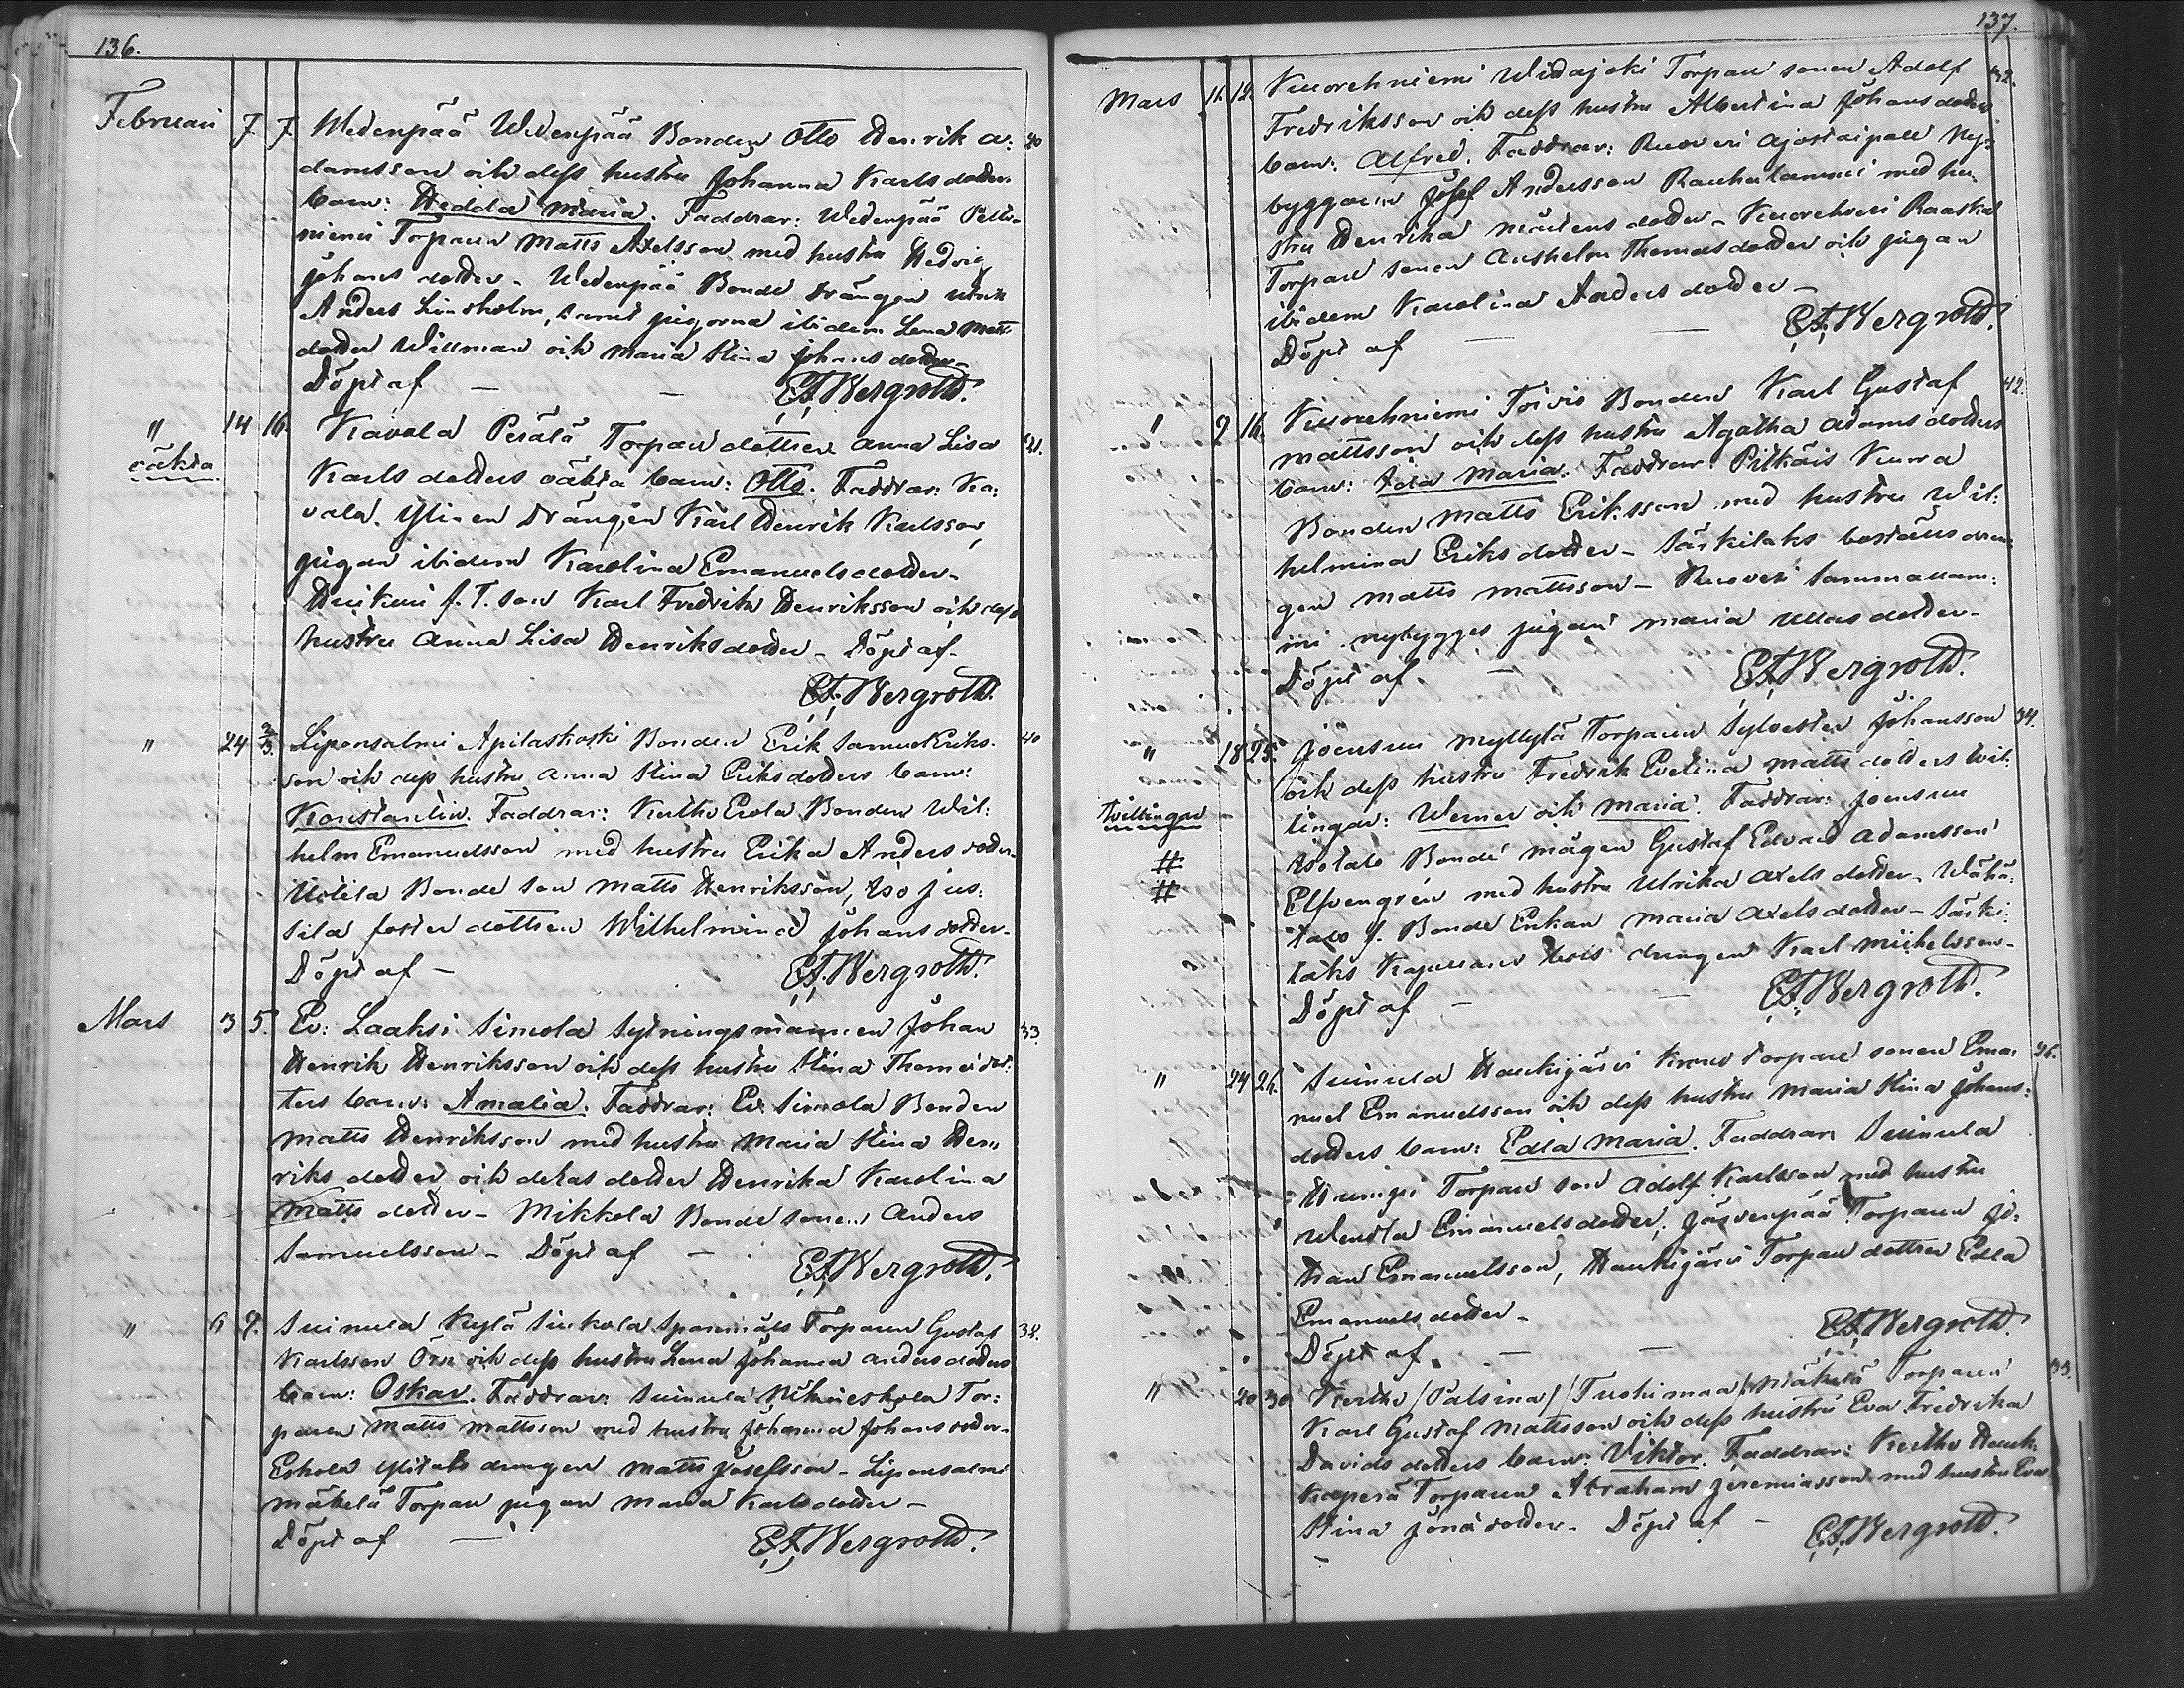 136.
Februari 7 7. Wedenpää Wedenpää Bonden Otto Henrik A: 40
damsson och dess hustru Johanna Karlsdotters
barn: Hedda Maria. Faddrar: Wedenpää
niemi Torparen Matts Axelsson med hustru Hedvig
Johansdotter - Wedenpää Bonde drängen
Anders Lindholm, samt pigorna ibidem Lena Matts
dotter Willman och Maria Stina Johansdotter
Döpt af — — E.A. Bergroth.
" 14 16. Kavala Perälä Torpare dottren Anna Lisa 21.
oäkta
Karls dotters oäkta barn: Otto. Faddrar: Ka:
vala. Ylinen Drängen Karl Henrik Karlsson,
pigan ibidem Karolina Emanuelsdotter -
f. T. son Karl Fredrik Henriksson och dess
hustru Anna Lisa Henriksdotter - Döpt af -
E.A. Bergroth.
" 24 2/3. Liponsalmi Apilaskoski Bonden Erik Samuel Eriks: 40
son och dess hustru Anna Stina Eriksdotters barn:
Konstantin. Faddrar: Kutho Erola Bonden Wil:
helm Emanuelsson med hustru Erika Andersdotter -
Uotila Bonde son Matts Henriksson, Iso jus:
sila foster dottren Wilhelmina Johansdotter -
Döpt af — E.A. Bergroth.
Mars 3 5. Ev: Laaksi Simola Sytningsmannen Johan 33
Henrik Henriksson och dess hustru Stina Thomædot:
ters barn: Amalia. Faddrar: Ev. Simola Bonden
Matts Henriksson med hustru Maria Stina Hen:
riks dotter och deras dotter Henrika Karolina
Matts dotter - Mikkola Bonde sonen Anders
Samuelsson - Döpt af — E.A. Bergroth.
" 6 9. Suinula Kylä Sinkola Torparen Gustaf 38.
Karlsson Örn och dess hustru Lena Johanna Andersdotters
barn: Oskar. Faddrar: Suinula Tor:
paren Matts Mattsson med hustru Johanna Johansdotter -
Eskola Ylitalo drängen Matts Josefsson - Liponsalmi
Mäkelä Torpare pigan Maria Karlsdotter -
Döpt af — E.A. Bergroth.
137.
Mars 11. 12. Kuorehniemi Widajoki Torpare sonen Adolf 32.
Fredriksson och dess hustru Albertina Johansdotters
barn: Alfred. Faddrar: Ruoveri Ajostaipale Ny:
byggaren Josef Andersson Rauhalammi med hu:
stru Henrika Mårtensdotter - Kuorehveri Raaska
Torpare sonen Anshelm Thomasdotter och pigan
ibidem Karolina Anders dotter -
Döpt af — — E.A. Bergroth.
" 9 16. Kuorehniemi Toivio Bonden Karl Gustaf 42.
Mattsson och dess hustru Agatha Adamsdotters
barn: Ida Maria. Faddrar: Pitkäis Kuura
Bonden Matts Eriksson med hustru Wil:
helmina Eriksdotter - Särkilaks boställsdrän
gen Matts Mattsson - Ruoveri Sammallam:
mi nybygges pigan Maria Ullasdotter -
Döpt af. — E.A. Bergroth.
" 18 25. Joensuu Myllylä Torparen Sylvester Johansson 34.
och dess hustru Fredrik Evelina Mattsdotters twil:
Twillingar
lingar: Werner och Maria. Faddrar: Joensuu
#
Isotalo Bonde mågen Gustaf Edvard Adamsson
#
Elfvengren med hustru Ulrika Axelsdotter - Wähä:
talo f. Bonde Enkan Maria Axelsdotter - Särki:
laks Kapellans bols drängen Karl Michelsson -
Döpt af — — E.A. Bergroth.
" 24 26. Suinula Haukijärvi Krono torpare sonen Ema: 26.
nuel Emanuelsson och dess hustru Maria Stina Johans:
dotters barn: Edla Maria. Faddrar: Suinula
Humpi Torpare son Adolf Karlsson med hustru
Wendla Emanuelsdotter, Järvenpää Torparen Jo:
han Emanuelsson, Haukijärvi Torpare dottren Edla
Emanuels dotter -
Döpt af. — — E.A. Bergroth.
" 20 30 Kutho /Palsina/ /Tuohimaa/ Mäkelä Torparen 33.
Karl Gustaf Mattsson och dess hustru Eva Fredrika
Davids dotters barn: Viktor. Faddrar: Kutho Hauk:
Torparen Abraham Jeremiasson med hustru Eva
Stina Jonædotter - Döpt af — E.A. Bergroth.